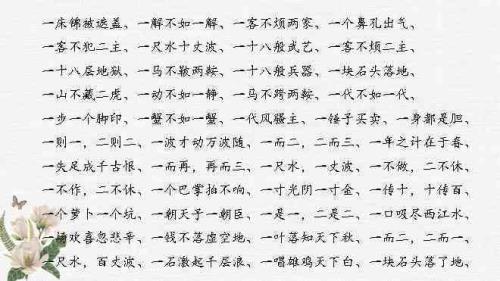 一床锦被遮盖、一解不如一解、一客不烦两家、一个鼻孔出气、
一客不犯二主、一尺水十丈波、一十八般武艺、一客不烦二主、
一十八层地狱、一马不鞁两鞍、一十八般兵器、一块石头落地、
一山不藏二虎、一动不如一静、一马不跨两鞍、一代不如一代、
一步一个脚印、一蟹不如一蟹、一代风骚主、一锤子买卖、一身都是胆、
一则一，二则二、一波才动万波随、一而二，二而三、一年之计在于春、
一失足成千古恨、一而再，再而三、一尺水，一丈波、一不做，二不休、
一不作，二不休、一个巴掌拍不响、一寸光阴一寸金、一传十，十传百、
一个萝卜一个坑、一朝天子一朝臣、一是一，二是二、一口吸尽西江水、
一场欢喜忽悲辛、一钱不落虚空地、一叶落知天下秋、一而二，二而一、
一尺水，百丈波、一石激起千层浪、一唱雄鸡天下白、一块石头落了地、